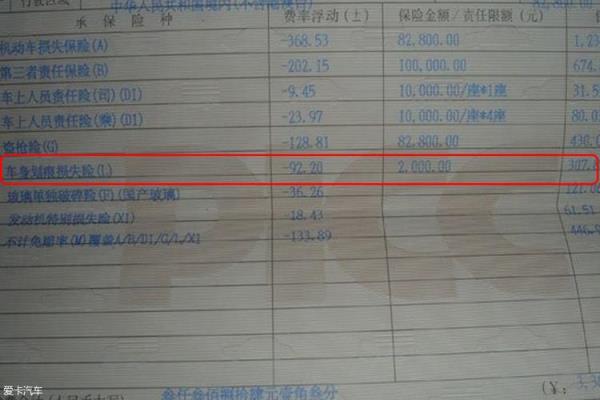 中华人民共和国境内(不含港澳台)
承保险种 费率浮动(±) 保险金额/责任限额(元)
机动车损失保险(A) -368.53 82,800.00 1,23
第三者责任保险(B) -202.15 100,000.00 674.
车上人员责任险(司)(D1) -9.45 10,000.00/座*1座 31.5
车上人员责任险(乘)(D1) -23.97 10,000.00/座*4座 80.0
盗抢险(G) -128.81 82,800.00 430.0
车身划痕损失险(L) -92.20 2,000.00 307.
玻璃单独破碎险(F)(国产玻璃) -36.26 121.0
发动机特别损失险(X1) -18.43 61.51
不计免赔率(M)覆盖A/B/D1/G/L/X1 -133.89 446.
PICC
叁仟叁佰肆元壹角叁分 (¥: 3,3
爱卡汽车